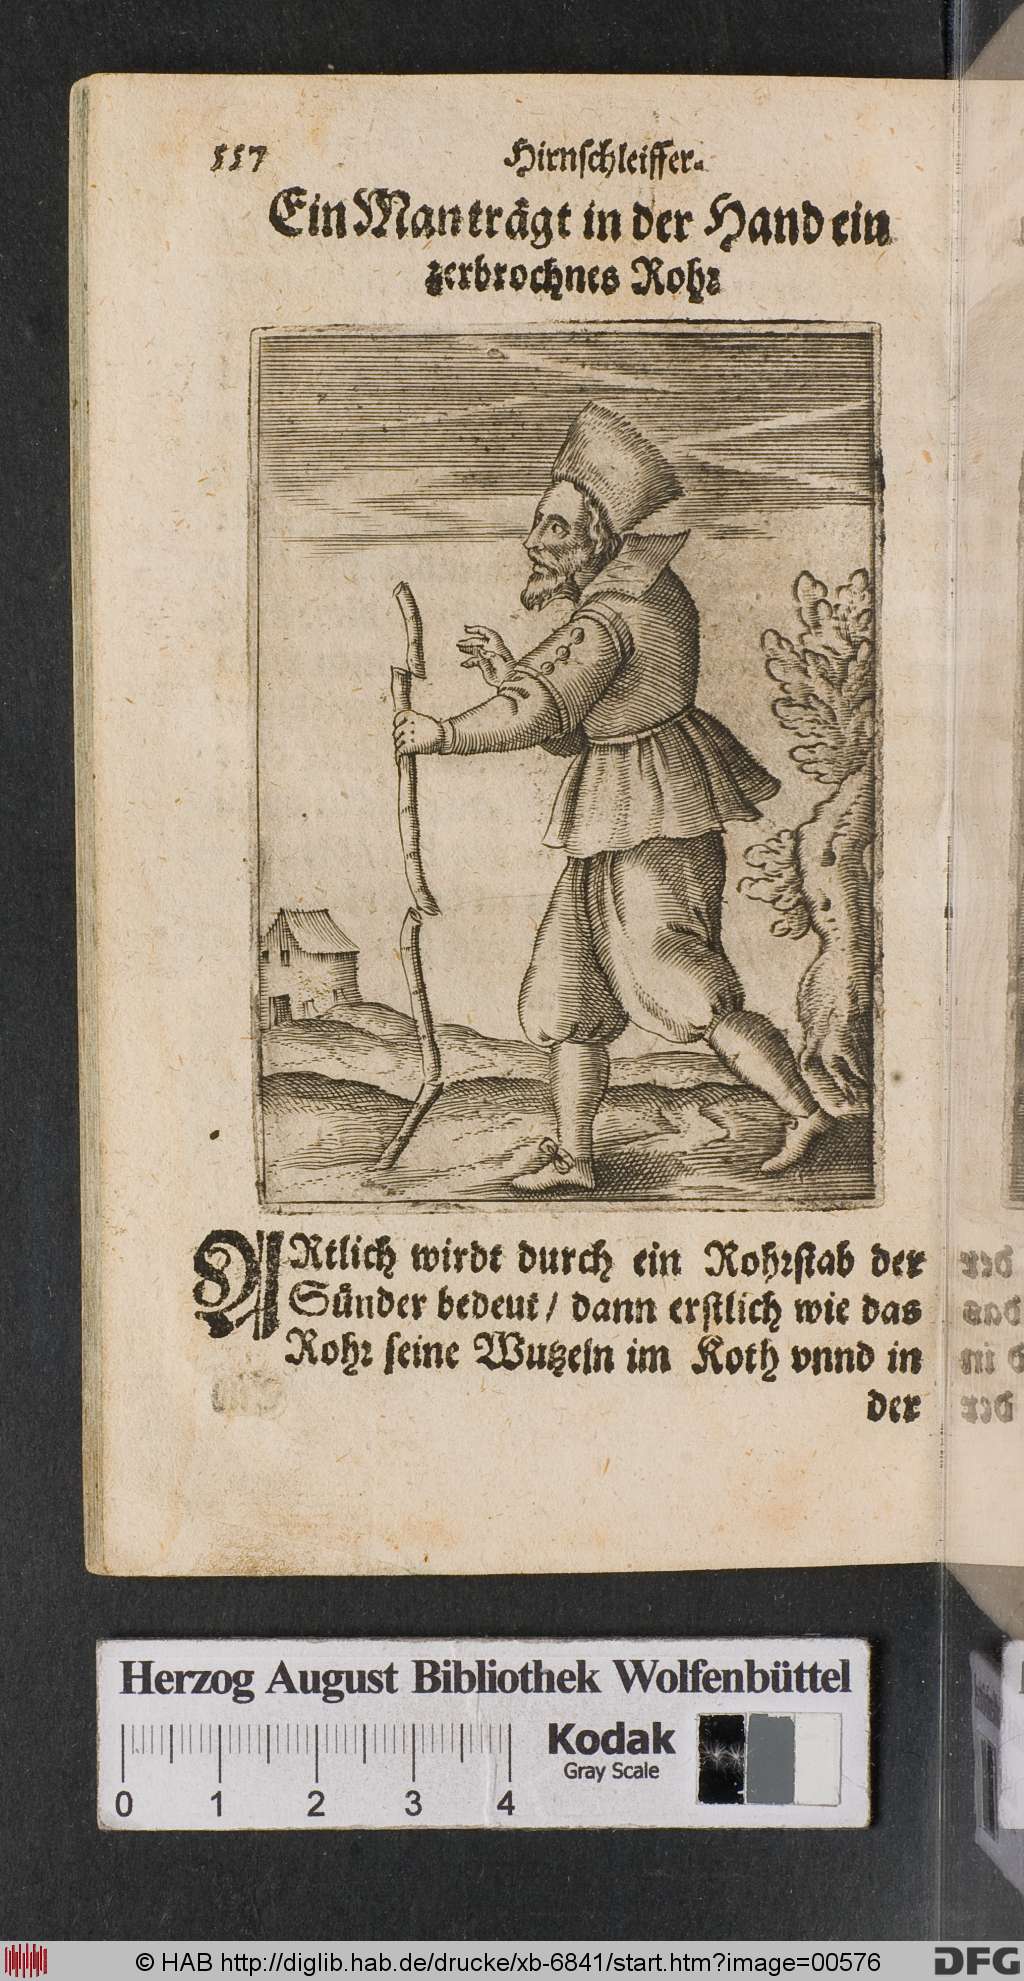 557 Hirnschleiffer.
Ein Man trägt in der Hand ein
zerbrochnes Rohr
ARtlich wirdt durch ein Rohrstab der
Sünder bedeut / dann erstlich wie das
Rohr seine Wutzeln im Koth vnnd in
der
Herzog August Bibliothek Wolfenbüttel
Kodak
Gray Scale
0 1 2 3 4
© HAB http://diglib.hab.de/drucke/xb-6841/start.htm?image=00576
DFG